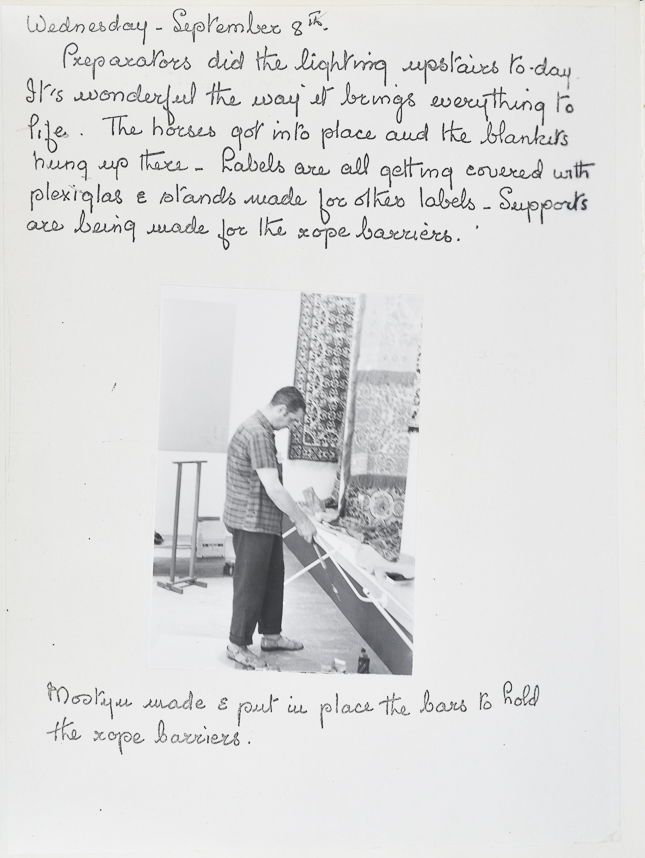 Wednesday - September 8th.
Preparators did the lighting upstairs to-day.
It's wonderful the way it brings everything to
life. The horses got into place and the blankets
hung up there - Labels are all getting covered with
plexiglas & stands made for other labels - Supports
are being made for the rope barriers.
Mostyn made & put in place the bars to hold
the rope barriers.